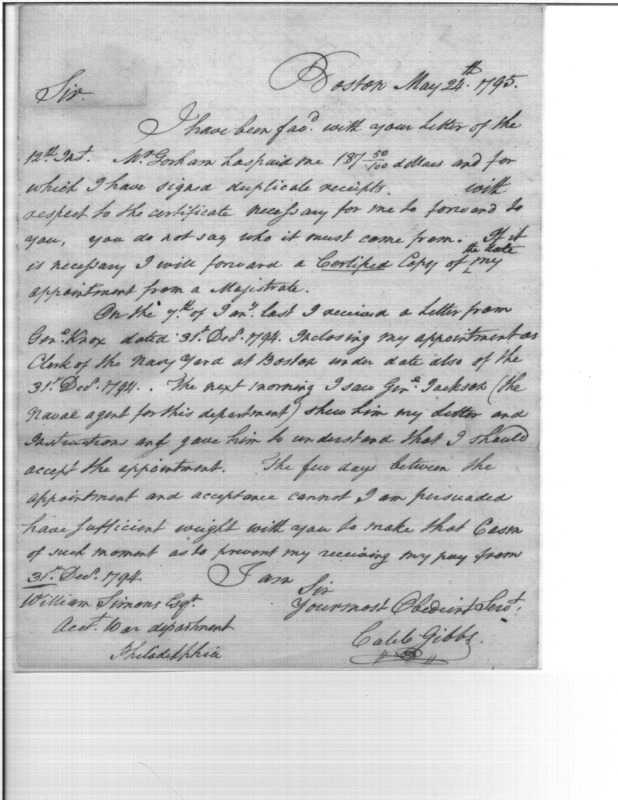 Boston May 24th. 1795.
Sir.
I have been fav'd. with your Letter of the
12th Inst. Mr Gorham has paid me 187 50/100 dollars and for
which I have signed duplicate receipts. with
respect to the certificate necessary for me to forward to
you, you do not say who it must come from. If it
is necessary I will forward a Certified Copy of the date my
appointment from a Majistrate.
On the 7th of Jany. last I received a Letter from
Genl. Knox dated 31st Decr. 1794. Inclosing my appointment as
Clerk of the Navy Yard at Boston under date also of the
31st Decr. 1794.. The next morning I saw Genl. Jackson (the
Naval agent for this department) shew him my Letter and
Instructions and gave him to understand that I should
accept the appointment. The few days between the
appointment and acceptance cannot I am persuaded
have sufficient weight with you to make that
of such moment as to prevent my receiving my pay from
31st Decr. 1794.
I am
Sir
Your most Obedient Servt.
Caleb Gibbs.
William Simons Esqr.
Acct. War department
Philadelphia